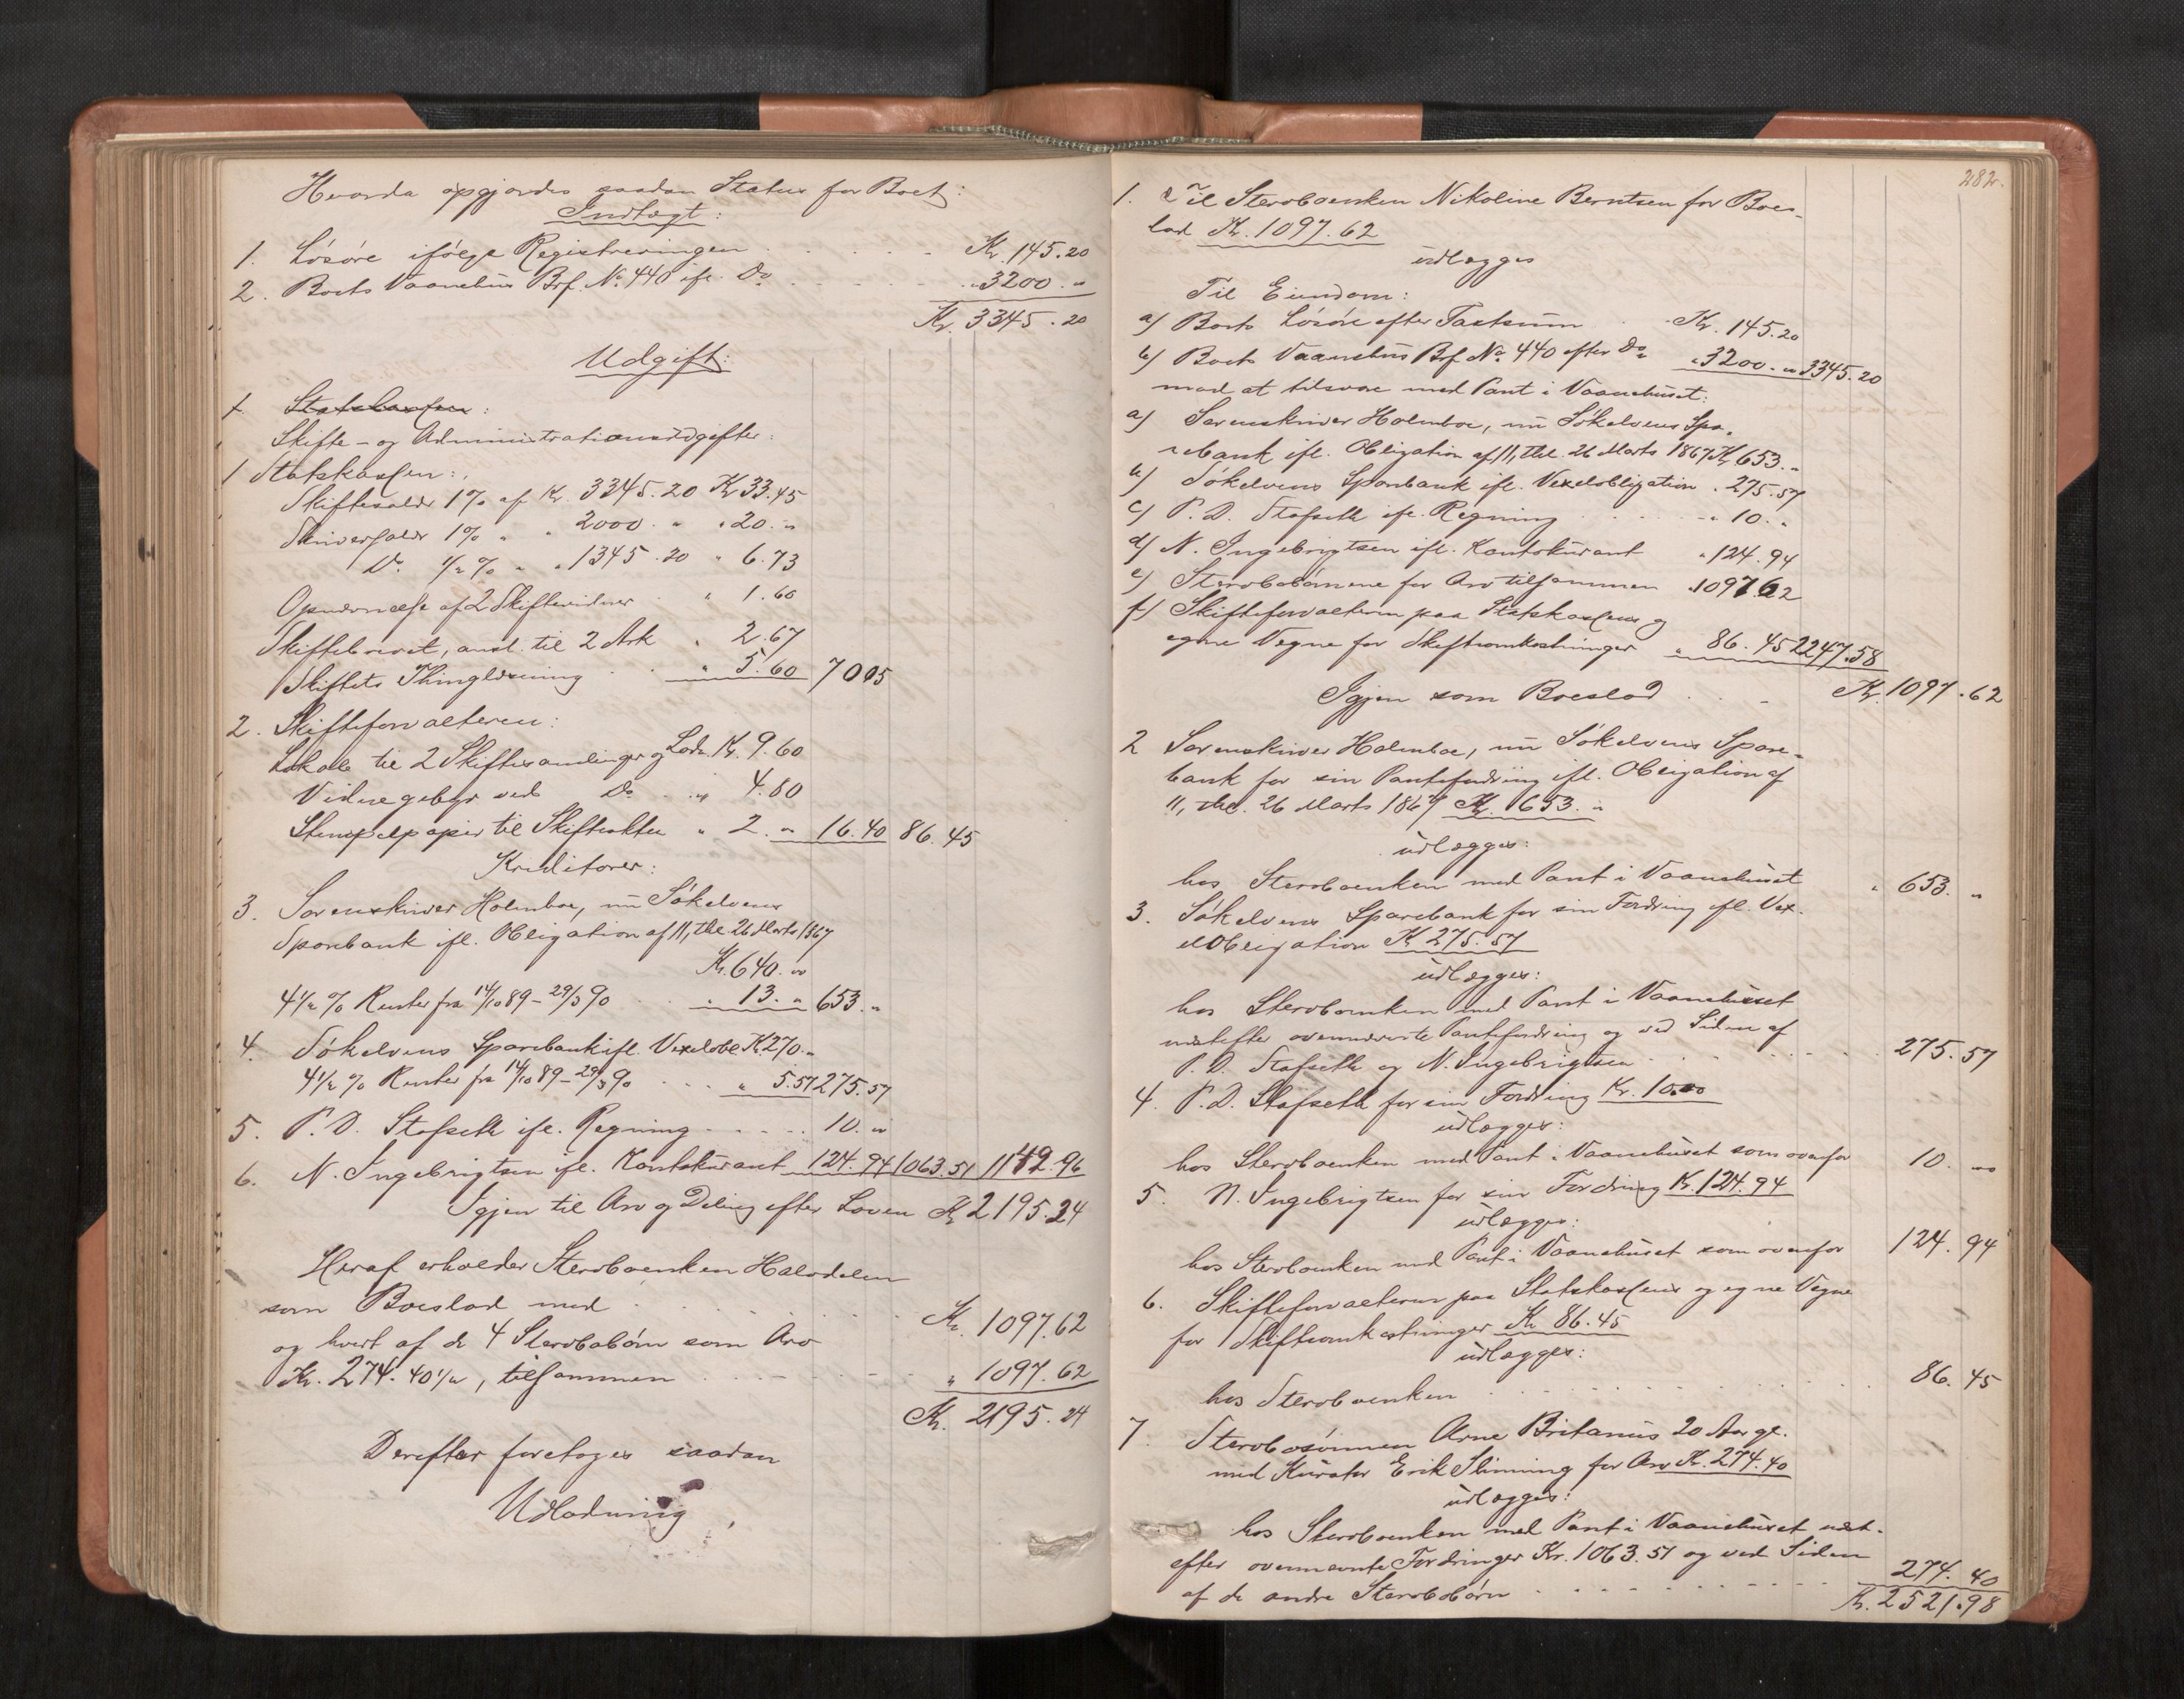 Hvorda opgjordes saadan Status for Boet:
Indtægt:
1. Løsøre ifølge Registreringen . . . . . Kr. 145.20
2. Boets Vaanehus Brf. No. 440 ifl. Do . . . . . " 3200. "
Kr. 3345.20
Udgift:
1. Statskassen:
Skifte- og Administrationsudgifter:
1 Statskassen:
Skiftesalær 1% af Kr. 3345.20 Kr. 33.45
Skriversalær 1% " " 2000. " " 20. "
Do. 1/2% " " 1345.20 " 6.73
Opnævnelse af 2 Skiftevidner . " 1.60
Skiftebrevet, ansl. til 2 Ark " 2.67
Skiftets Thinglæsning . . " 5.60 70 05
2. Skifteforvalteren:
Lokale til 2 Skiftesamlinger og Lodn. Kr. 9.60
Vidnegebyr ved Do . . " 4.80
Stempelpapir til Skifteakten " 2. " 16.40 86.45
Kreditorer:
3. Sorenskriver Holmboe, nu Søkelvens
Sparebank ifl. Obligation af 11, thl. 26 Marts 1867
Kr. 640. "
4 1/2 % Renter fra 14/10 89 - 29/3 90 . . " 13. " 653. "
4. Søkelvens Sparebank ifl. Vexelobl. Kr. 270. "
4 1/2 % Renter fra 14/10 89 - 29/3 90 . . . " 5.57 275.57
5. P. D. Stafseth ifl. Regning . . . . . 10. "
6. N. Ingebrigtsen ifl. Kontokurant 124.94 1063.51 1149.96
Igjen til Arv og Deling efter Loven Kr. 2195.24
Heraf erholder Sterboenken Halvdelen
som Boeslod med . . . . . . Kr. 1097.62
og hvert af de 4 Sterbobørn som Arv
Kr. 274.40 1/2, tilsammen . . . . . " 1097.62
Kr. 2195.24
Derefter foretoges saadan
Udlodning
282.
1. Til Sterboenken Nikoline Berntsen for Boes-
lod Kr. 1097.62
udlægges
Til Eiendom:
a) Boets Løsøre efter Taxtsum . . Kr. 145.20
b) Boets Vaanehus Brf. No. 440 efter Do " 3200. " 3345.20
mod at tilsvare med Pant i Vaanehuset:
a) Sorenskriver Holmboe, nu Søkelvens Spa-
rebank ifl. Obligation af 11, thl. 26 Marts 1867 Kr. 653. "
b) Søkelvens Sparebank ifl. Vexelobligation " 275.57
c) P. D. Stafseth ifl. Regning . . . . " 10. "
d) N. Ingebrigtsen ifl. Kontokurant " 124.94
e) Sterbobørnene for Arv tilsammen " 1097.62
f) Skifteforvalteren paa Statskassens og
egne Vegne for Skifteomkostninger " 86.45 2247.58
Igjen som Boeslod . . . Kr. 1097.62
2 Sorenskriver Holmboe, nu Søkelvens Spare-
bank for sin Pantefordring ifl. Obligation af
11, thl. 26 Marts 1867 Kr. 653. "
udlægges:
hos Sterboenken med Pant i Vaanehuset " 653. "
3. Søkelvens Sparebank for sin Fordring ifl. Vex-
elobligation Kr. 275.57
udlægges:
hos Sterboenken med Pant i Vaanehuset
næstefter ovennævnte Pantefordring og ved Siden af
P. D. Stafseth og N. Ingebrigtsen . . . . . . 275.57
4. P. D. Stafseth for sin Fordring Kr. 10.00
udlægges:
hos Sterboenken med Pant i Vaanehuset som ovenfor 10. "
5. N. Ingebrigtsen for sin Fordring Kr. 124.94
udlægges:
hos Sterboenken med Pant i Vaanehuset som ovenfor 124.94
6. Skifteforvalteren paa Statskassens og egne Vegne
for Skifteomkostninger Kr. 86.45
udlægges:
hos Sterboenken . . . . . . . . 86.45
7. Sterbosønnen Arne Britanius 20 Aar gl.
med Kurator Erik Slinning for Arv Kr. 274.40
udlægges:
hos Sterboenken med Pant i Vaanehuset næst-
efter ovennævnte Fordringer Kr. 1063.51 og ved Siden
af de andre Sterbobørn . . . . . . . 274.40
Kr. 2521.98